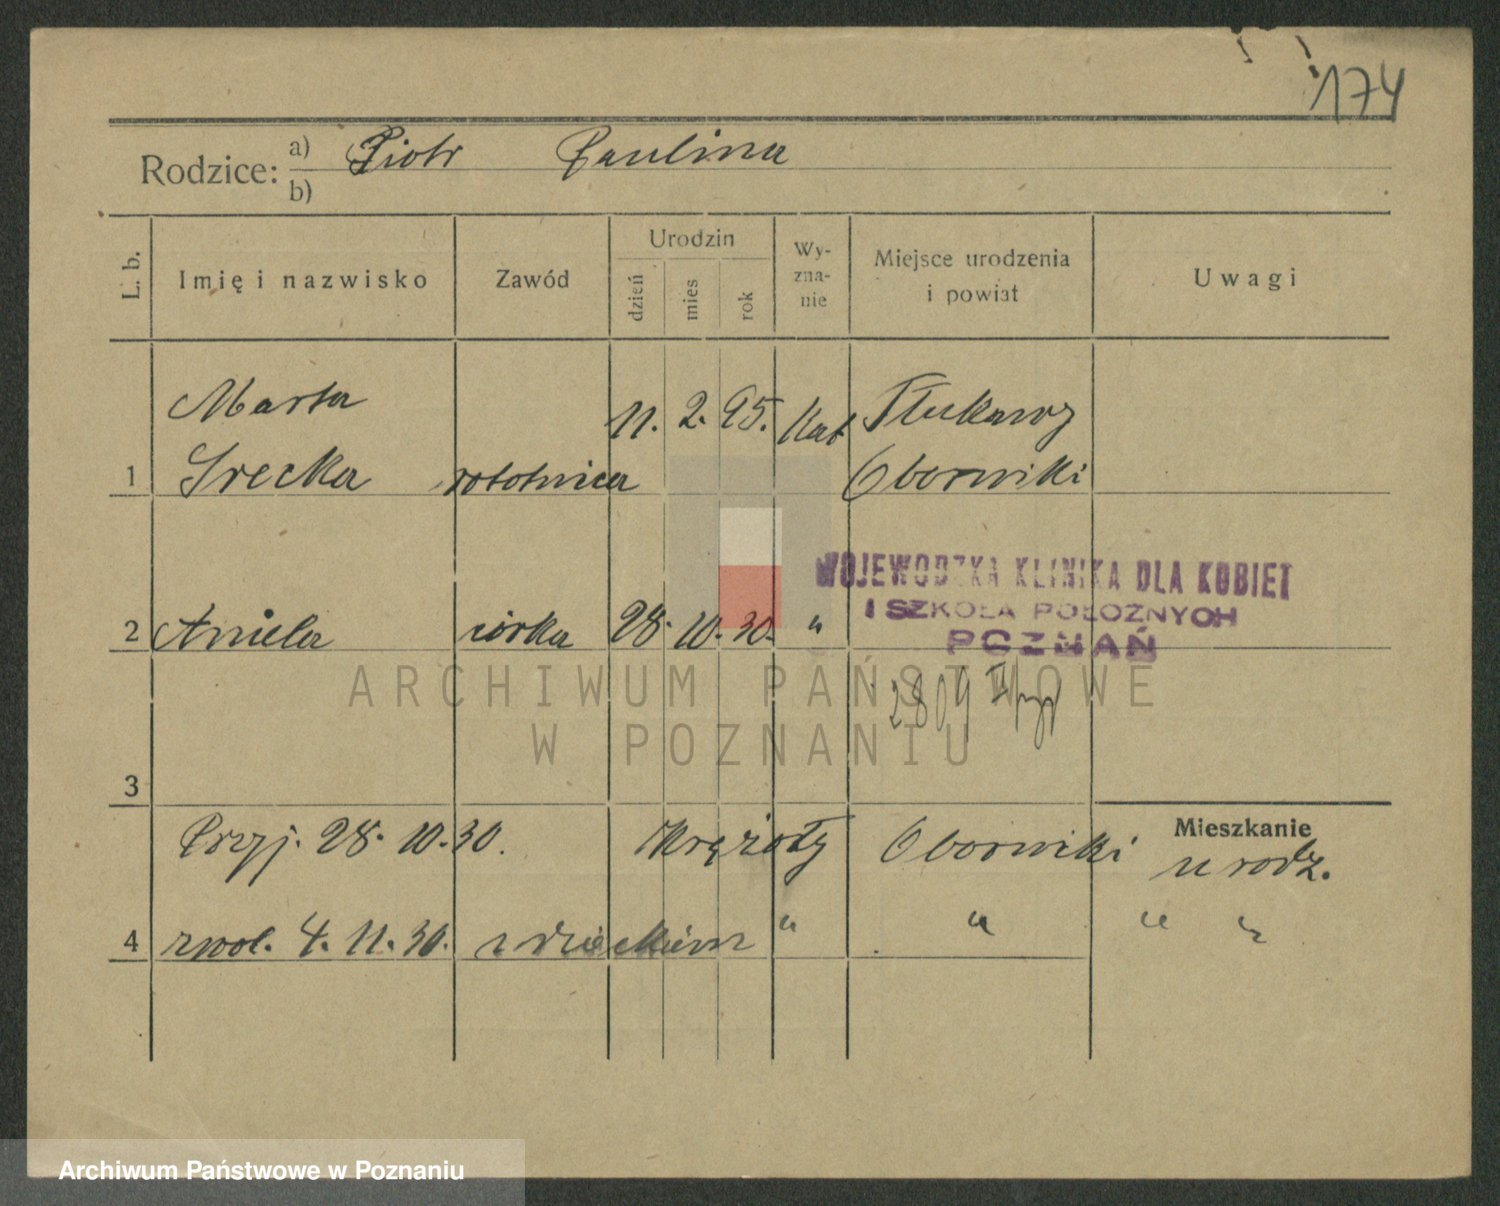 174
Rodzice: a) Piotr Paulina
b)
L. b. Imię i nazwisko Zawód Urodzin dzień mies rok Wy-zna-nie Miejsce urodzenia i powiat Uwagi
Marta 11. 2. 95. Kat Tłukawy
1 Srecka robotnica Oborniki
WOJEWODZKA KLINIKA DLA KOBIET
I SZKOŁA POŁOŻNYCH
POZNAŃ
2 Aniela córka 28. 10. 30. "
ARCHIWUM PAŃSTWOWE
W POZNANIU
2809 II
3
Mieszkanie
Przyj. 28. 10. 30. Krężoły Oborniki u rodz.
4 zwol. 4. 11. 30. z dzieckiem " " " "
Archiwum Państwowe w Poznaniu